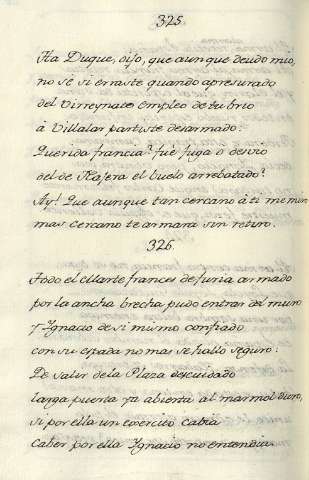 325.
Ha Duque, dijo, que aunque deudo mio,
no se si erraste quando apresurado
del Virreynato empleo de tu brio
à Villalar partiste desarmado:
Querida francia? fuè fuga o desvio
del de Naxera el buelo arrebatado?
Ay! Que aunque tan cercano à ti me miro
mas cercano te armara sin retiro.
326.
Todo el Marte frances de furia armado
por la ancha brecha pudo entrar del muro
y Ignacio de si mismo confiado
con su espada no mas se hallo seguro:
De salir de la Plaza descuidado
larga puerta ya abierta al marmol duro,
si por ella un exercito cabia
caber por ella Ignacio no entendia.